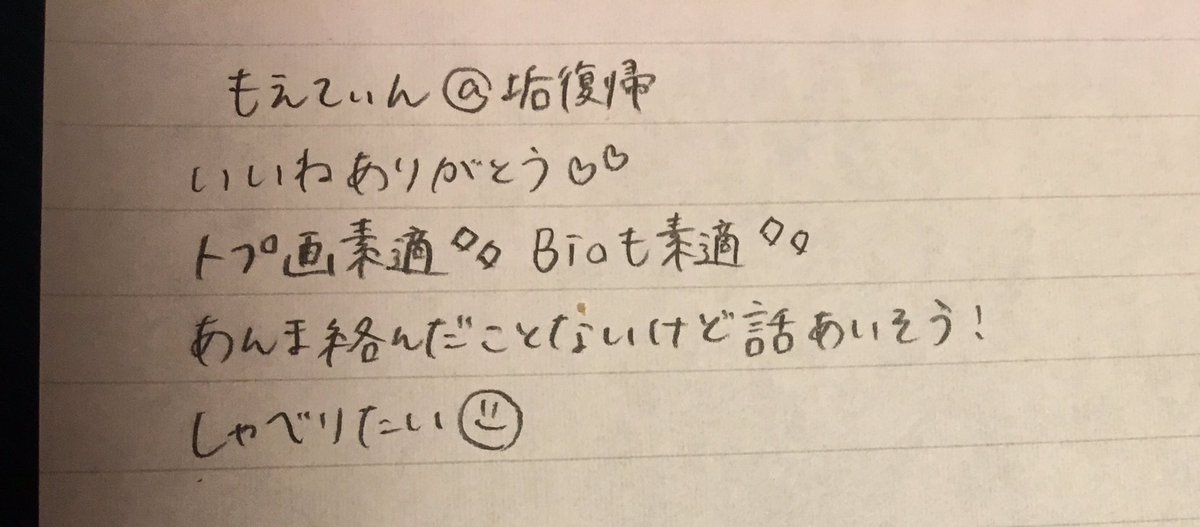 もえてぃん@垢復帰
いいねありがとう♡♡
トプ画素適◇◇ Bioも素適◇◇
あんま絡んだことないけど話あいそう!
しゃべりたい☺